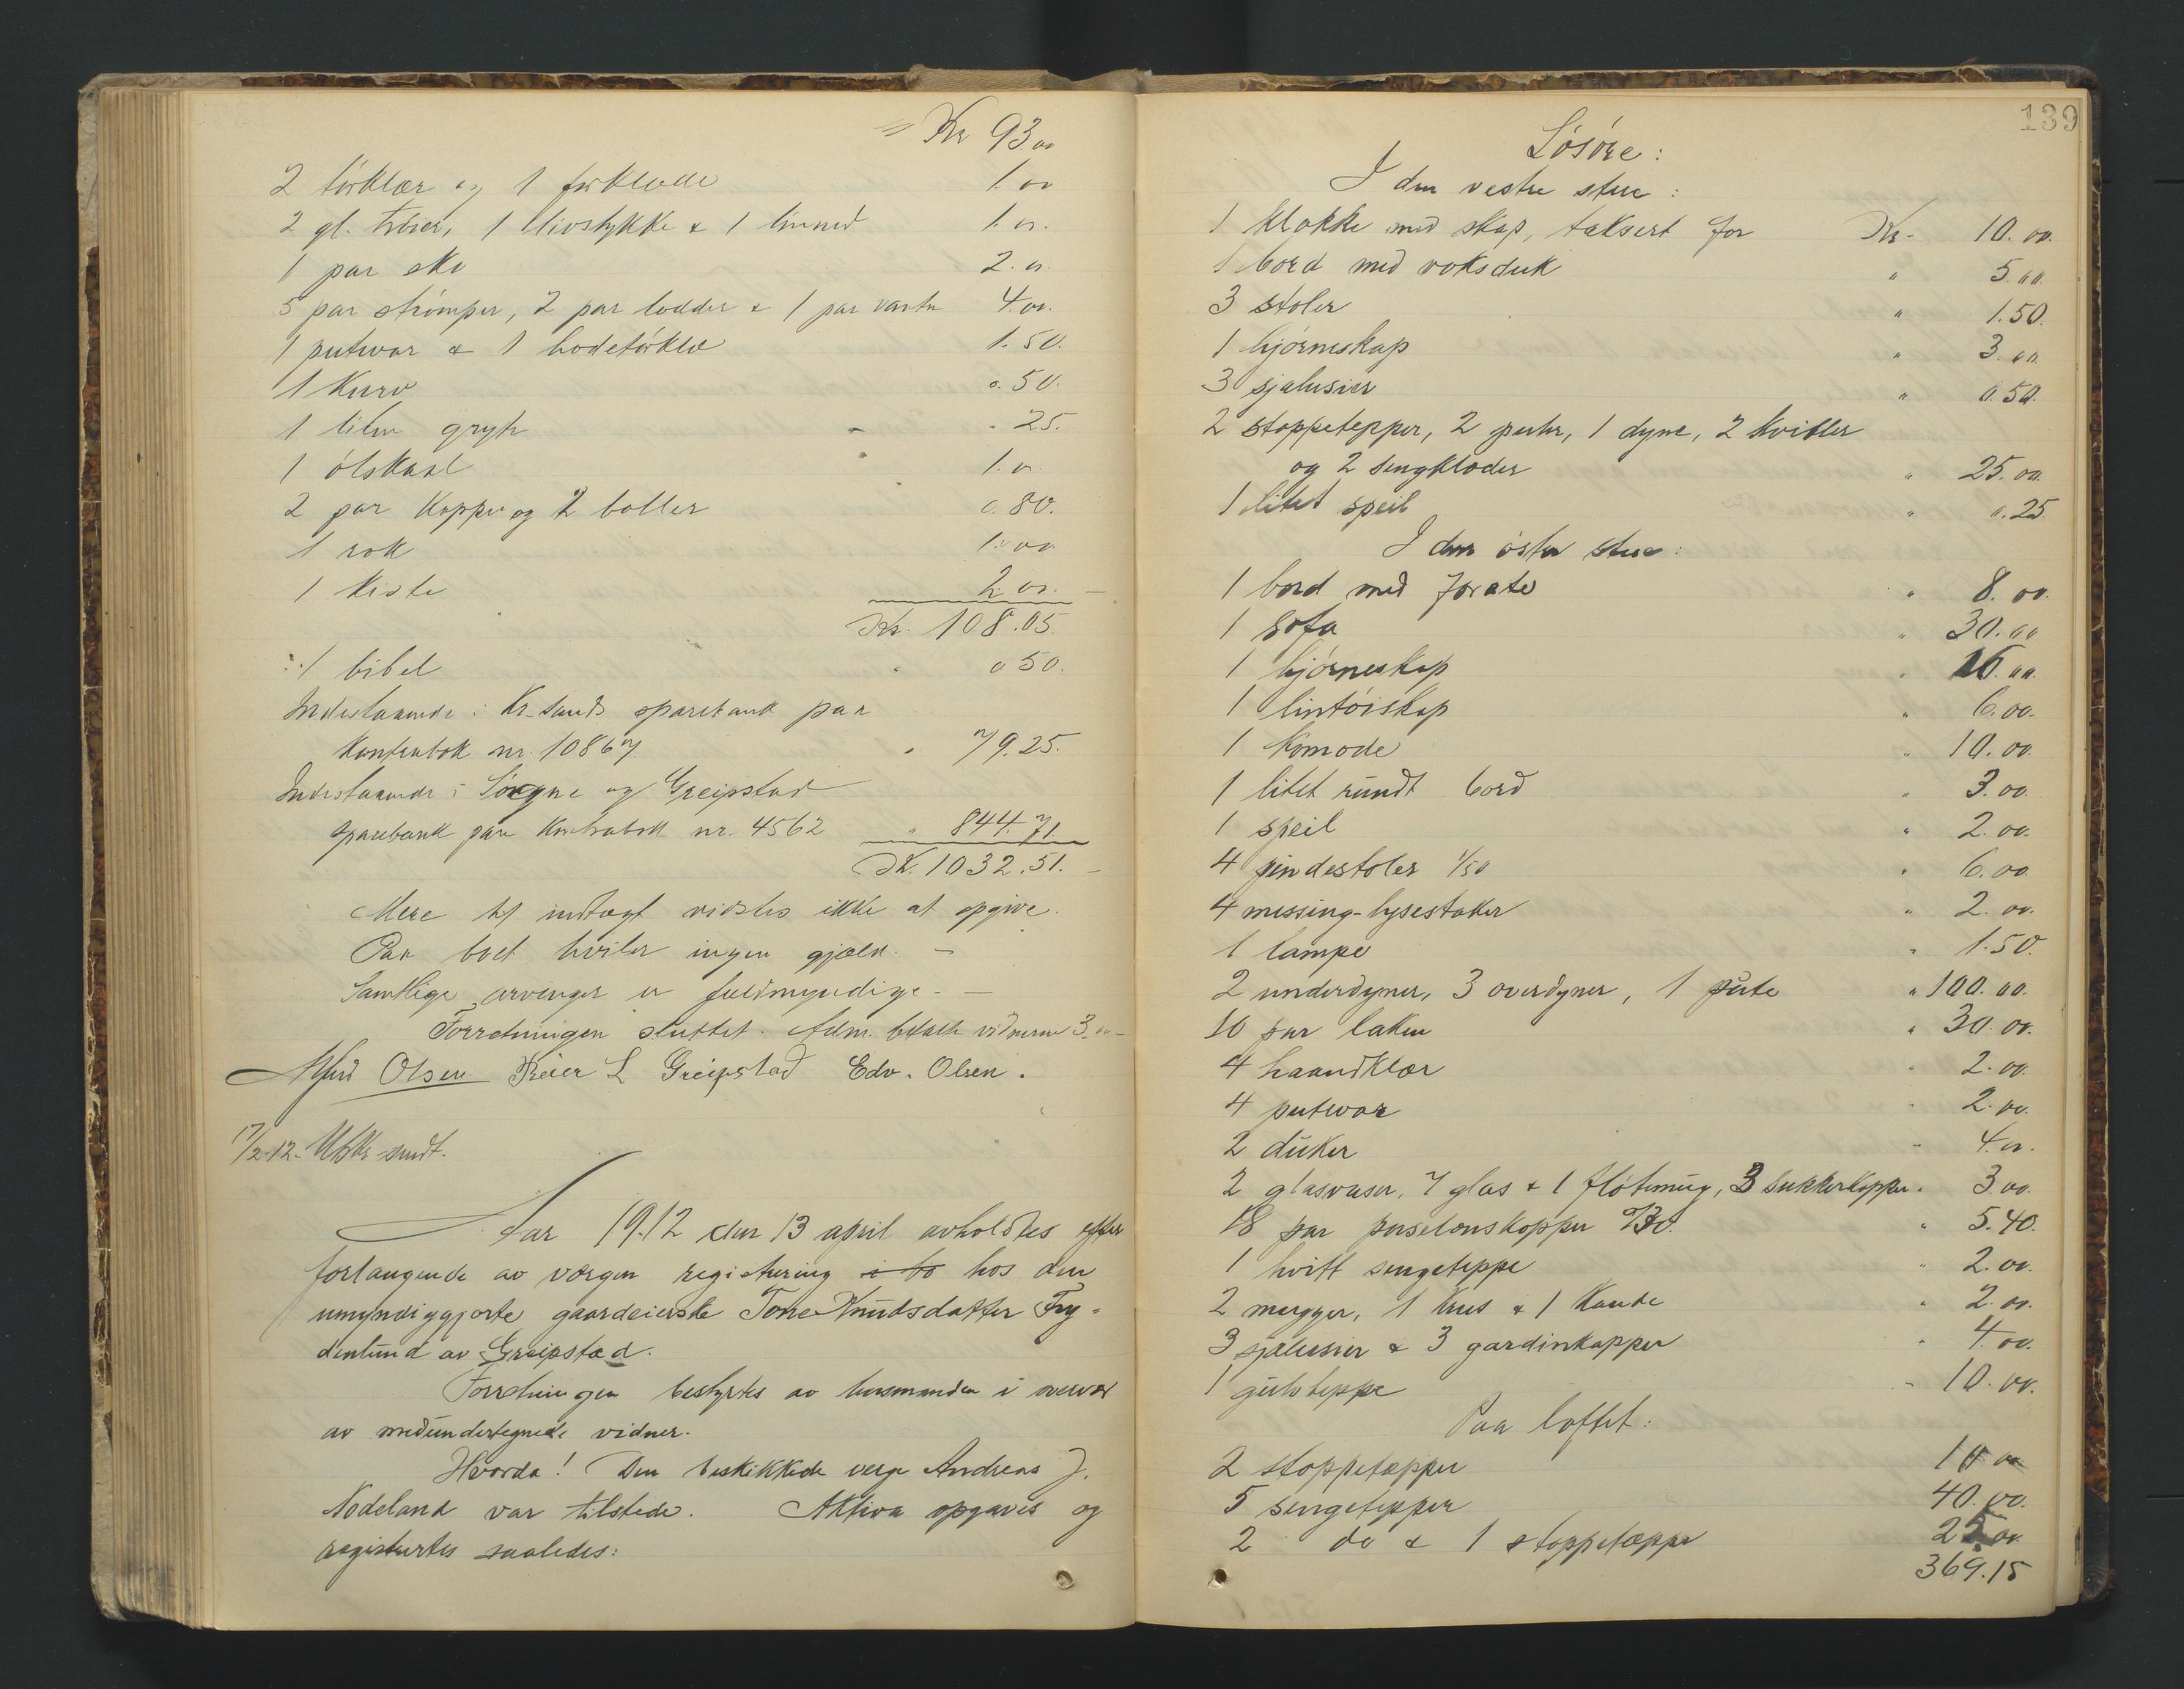 = Kr 93.00
2 törklær og 1 forklæde 1.00
2 gl. trøier, 1 livstykke & 1 linned 1.00.
1 par sko 2.00.
5 par strömper, 2 par lodder & 1 par vanter 4.00.
1 putevar & 1 hodetörklæ 1.50.
1 kurv 0.50.
1 liten gryte - " 25.
1 ölskaal 1.00
2 par kopper og 2 boller 0.80.
1 rok 1.00
1 kiste 2.00. -
Kr. 108.05.
1 bibel " 0 50.
Indestaaende i Kr-sands sparebank paa
kontrabok nr. 10867 " 79.25.
Indestaaende i Søgne og Greipstad
sparebank paa kontrabok nr. 4562 " 844.71.
Kr. 1032.51. -
Mere til indtægt vidstes ikke at opgive.
Paa boet hviler ingen gjæld. -
Samtlige arvinger er fuldmyndige. -
Forretningen sluttet. Adm. betalte vidnerne 3.00-
Alfred Olsen. Reier L Greipstad Edv. Olsen.
17/2-12. Utskr. sendt.
Aar 1912 den 13 april avholdtes efter
forlangende av værgen registrering i bo hos den
umyndiggjorte gaardeierske Tone Knudsdatter Fry-
denlund av Greipstad.
Forretningen bestyrtes av lensmanden i overvær
av medundertegnede vidner.
Hvorda! Den beskikkede verge Andreas J.
Nodeland var tilstede. Aktiva opgaves og
registrertes saaledes:
139
Løsøre:
I den vestre stue:
1 klokke med skap, taksert for Kr. 10.00.
1 bord med voksduk " 5.00.
3 stoler " 1.50.
1 hjørneskap " 3.00.
3 sjalusier " 0.50.
2 stoppetepper, 2 puter, 1 dyne, 2 kvitler
og 2 sengklæder " 25.00.
1 litet speil " 0.25
I den østre stue:
1 bord med " 8.00.
1 sofa " 30.00
1 hjørneskap " 15.00.
1 lintøiskap " 6.00.
1 komode " 10.00.
1 litet rundt bord " 3.00.
1 speil " 2.00.
4 pindestoler 1/50 " 6.00.
4 messing-lysestaker " 2.00.
1 lampe " 1.50.
2 underdyner, 3 overdyner, 1 pute " 100.00.
10 par laken " 30.00.
4 haandklær " 2.00.
4 putevar " 2.00.
2 duker " 4.00.
2 glasvaser, 7 glas & 1 fløtemug, 3 sukkerkopper " 3.00.
18 par porselenskopper 0/30. " 5.40.
1 hvitt sengeteppe " 2.00.
2 mugger, 1 krus & 1 kande " 2.00.
3 sjalusier & 3 gardinkapper " 4.00.
1 gulvteppe " 10.00.
Paa loftet:
2 stoppetæpper 10 00
5 sengetepper 40.00.
2 do & 1 stoppetæppe 25.00.
369.15